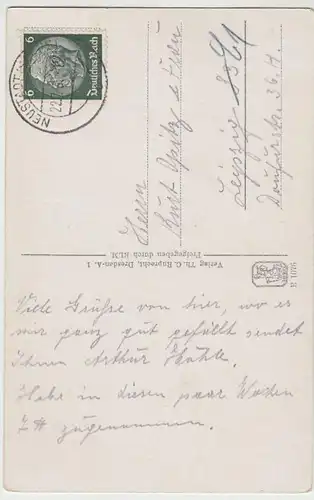 Deutsches Reich
6 6
NEUSTADT
22.
Herrn
Kurt Opitz
Leipzig
36 II.
Verlag Th. G. Ruprecht, Dresden-A. 1
Freigegeben durch RLM.
Viele Grüße von hier, wo es
mir ganz gut gefällt sendet
Ihnen Arthur
Habe in diesen paar Wochen
7 ℔ zugenommen.